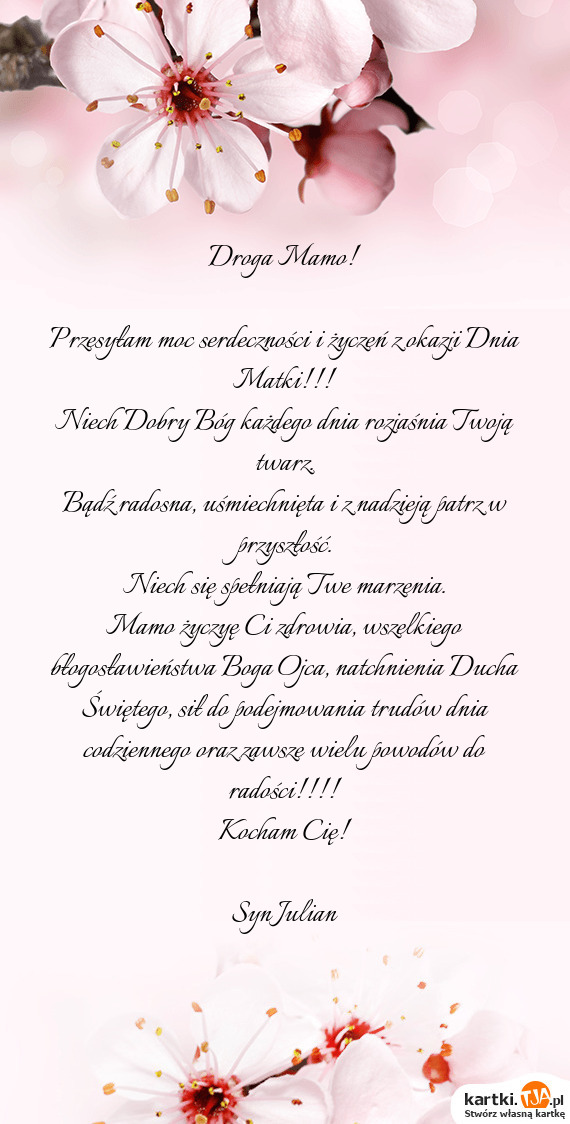 Droga Mamo!
Przesyłam moc serdeczności i życzeń z okazji Dnia
Matki!!!
Niech Dobry Bóg każdego dnia rozjaśnia Twoją
twarz.
Bądź radosna, uśmiechnięta i z nadzieją patrz w
przyszłość.
Niech się spełniają Twe marzenia.
Mamo życzyę Ci zdrowia, wszelkiego
błogosławieństwa Boga Ojca, natchnienia Ducha
Świętego, sił do podejmowania trudów dnia
codziennego oraz zawsze wielu powodów do
radości!!!!
Kocham Cię!
Syn Julian
kartki.TJA.pl
Stwórz własną kartkę